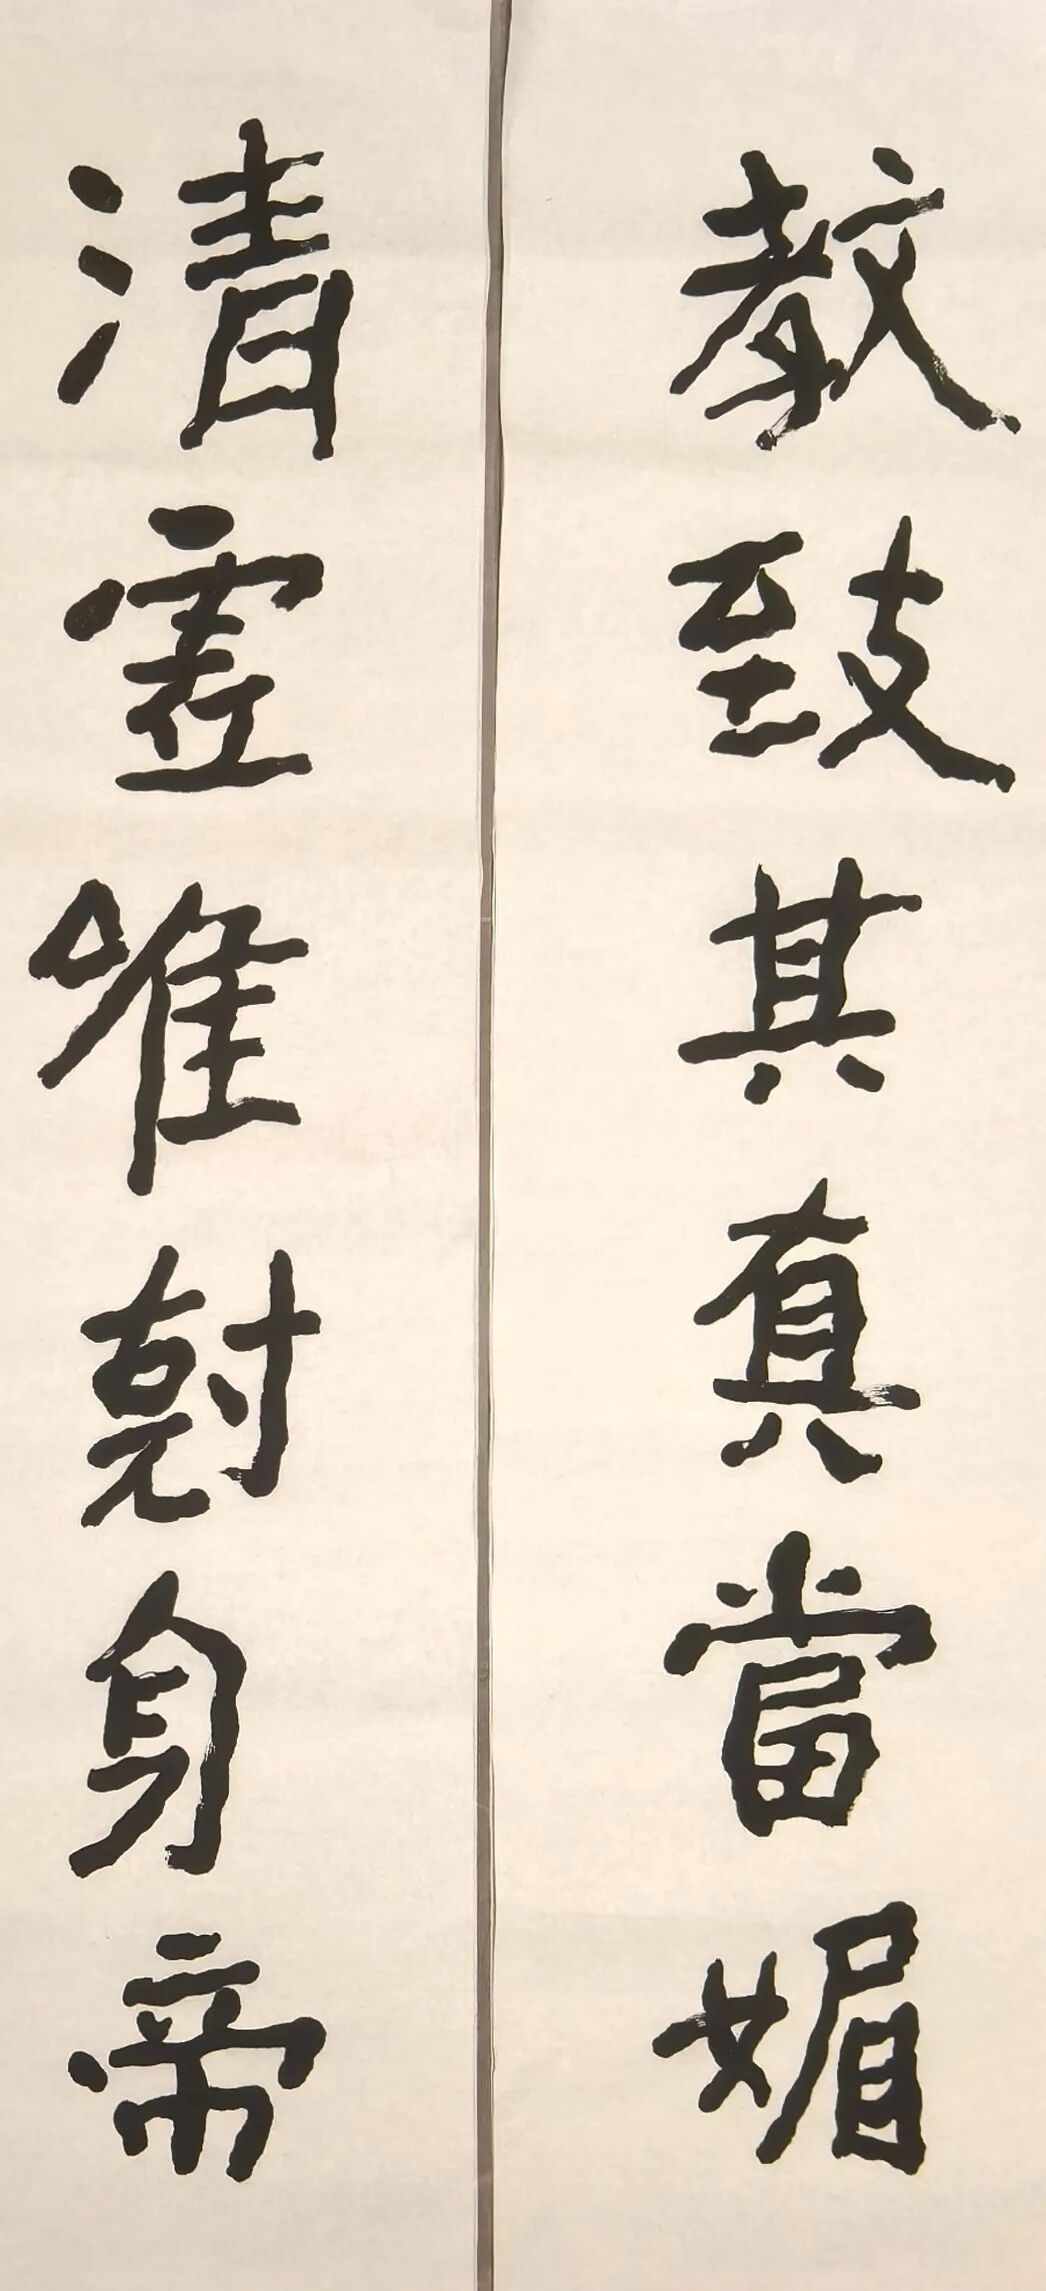 教致其真當媚
清虛唯尅身帝